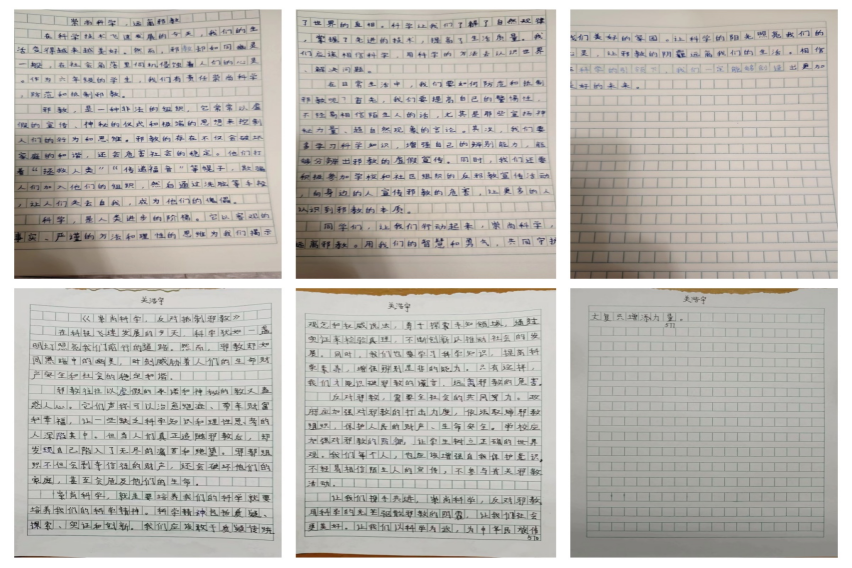 崇尚科学，远离邪教
在科学技术飞速发展的今天，我们的生
活变得越来越美好。然而，邪教却如同幽灵
一般，在社会角落里伺机侵蚀着人们的心灵
。作为六年级的学生，我们有责任崇尚科学
，防范和抵制邪教。
邪教，是一种非法的组织，它常常以虚
假的宣传，神秘的仪式和极端的思想来控制
人们的行为和思维。邪教的存在不仅会破坏
家庭的和谐，还会危害社会的稳定。他们打
着“拯救人类”“传递福音”等幌子，欺骗
人们加入他们的组织，然后通过洗脑等手段
，让人们失去自我，成为他们的傀儡。
科学，是人类进步的阶梯。它以客观的
事实、严谨的方法和理性的思维为我们揭示
了世界的真相。科学让我们了解了自然规律
，掌握了先进的技术，提高了生活质量。我
们应该相信科学，用科学的方法去认识世界
，解决问题。
在日常生活中，我们要如何防范和抵制
邪教呢？首先，我们要提高自己的警惕性，
不轻易相信陌生人的话，尤其是那些宣扬神
秘力量、超自然现象的言论。其次，我们要
多学习科学知识，增强自己的辨别能力，能
够分辨出邪教的虚假宣传。同时，我们还要
积极参加学校和社区组织的反邪教宣传活动
，向身边的人宣传邪教的危害，让更多的人
认识到邪教的本质。
同学们，让我们行动起来，崇尚科学，
远离邪教。用我们的智慧和勇气，共同守护
我们美好的家园。让科学的阳光照亮我们的
心灵，让邪教的阴霾远离我们的生活。相信
在科学的引领下，我们一定能够创造出更加
美好的未来。
关浩宇
《崇尚科学，反对抵制邪教》
在科技飞速发展的今天，科学犹如一盏
明灯照亮我们前行的道路。然而，邪教却如
同黑暗中的幽灵，时刻威胁着人们的生命财
产安全和社会的稳定和谐。
邪教往往以虚假的承诺和神秘的教义蛊
惑人心。它们声称可以治愈疾病、带来财富
和幸福，让一些缺乏科学知识和理性思考的
人深陷其中。但当人们真正追随邪教后，却
发现自己陷入了无尽的痛苦和绝望。邪教组
织不但会剥夺信徒的财产，还会破坏他们的
家庭，甚至会危及他们的生命。
崇尚科学，就是要培养我们的科学就要
培养我们的科学精神。科学精神包括质疑、
探索、实证和创新。我们应该敢于质疑传统
关浩宇
观念和权威说法，勇于探索未知领域，通过
实证来检验真理，不断创新以推动社会的发
展。同时，我们也要学习科学知识，提高科
学素养，增强辨别是非的能力。只有这样，
我们才能识破邪教的谎言，远离邪教的危害。
反对邪教，需要全社会的共同努力。政
府应加强对邪教的打击力度，依法取缔邪教
组织，保护人民的财产、生命安全。学校应
加强对邪教的防御，让学生树立正确的世界
观。我们每个人，也应该增强自我保护意识。
不轻易相信陌生人的宣传，不参与有关邪教
活动。
让我们携手共进，崇尚科学，反对邪教
用科学的光芒驱散邪教的阴霾，让我们社会
更美好。让我们以科学为远，为中华民族伟
关浩宇
大复兴增添力量。